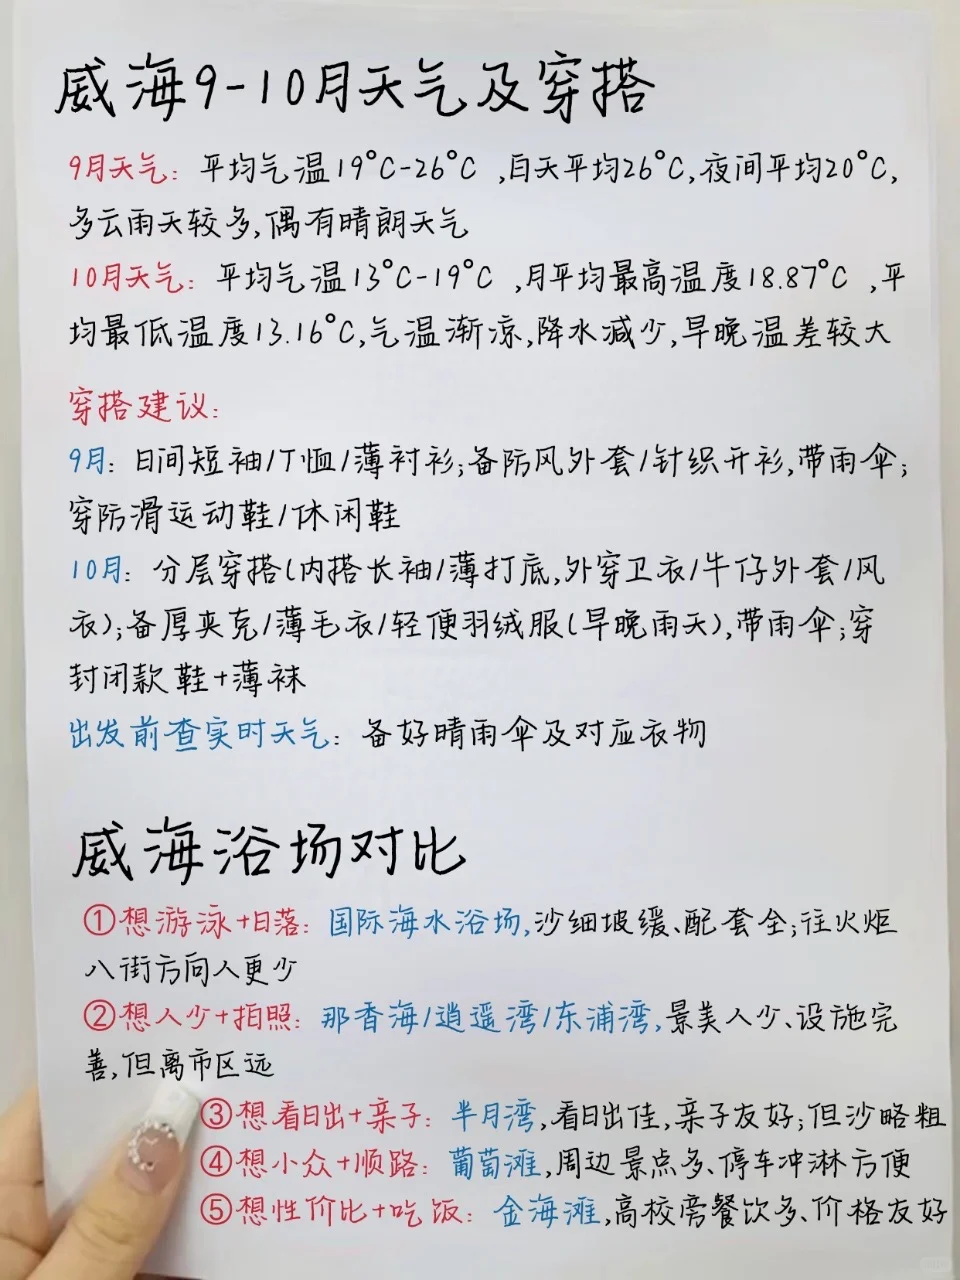 威海9-10月天气及穿搭
9月天气: 平均气温19°C-26°C ,白天平均26°C,夜间平均20°C,
多云雨天较多,偶有晴朗天气
10月天气: 平均气温13°C-19°C ,月平均最高温度18.87°C ,平
均最低温度13.16°C,气温渐凉,降水减少,早晚温差较大
穿搭建议:
9月: 日间短袖/T恤/薄衬衫;备防风外套/针织开衫,带雨伞;
穿防滑运动鞋/休闲鞋
10月: 分层穿搭(内搭长袖/薄打底,外穿卫衣/牛仔外套/风
衣);备厚夹克/薄毛衣/轻便羽绒服(早晚雨天),带雨伞;穿
封闭款鞋+薄袜
出发前查实时天气: 备好晴雨伞及对应衣物
威海浴场对比
①想游泳+日落: 国际海水浴场,沙细坡缓、配套全;往火炬
八街方向人更少
②想人少+拍照: 那香海/逍遥湾/东浦湾,景美人少、设施完
善,但离市区远
③想看日出+亲子: 半月湾,看日出佳,亲子友好;但沙略粗
④想小众+顺路: 葡萄滩,周边景点多、停车冲淋方便
⑤想性价比+吃饭: 金海滩,高校旁餐饮多、价格友好